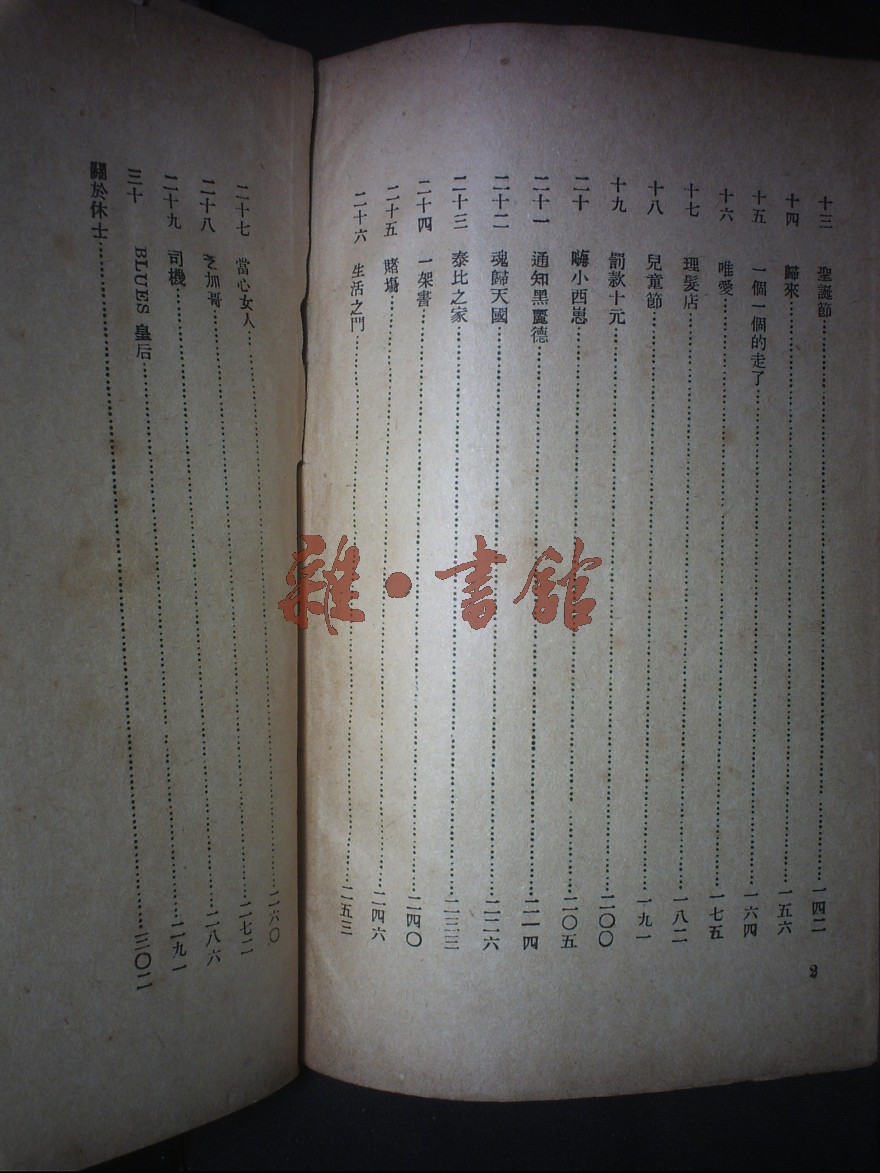 十三 聖誕節……一四二
十四 歸來……一五六
十五 一個一個的走了……一六四
十六 唯愛……一七五
十七 理髮店……一八二
十八 兒童節……一九一
十九 罰款十元……二〇〇
二十 嗨小西崽……二〇五
二十一 通知黑麗德……二一四
二十二 魂歸天國……二二六
二十三 泰比之家……二三三
二十四 一架書……二四〇
二十五 賭場……二四六
二十六 生活之門……二五三
2
二十七 當心女人……二六〇
二十八 芝加哥……二七二
二十九 司機……二八六
三十 BLUES 皇后……二九一
關於休士……三〇二
雜·書館